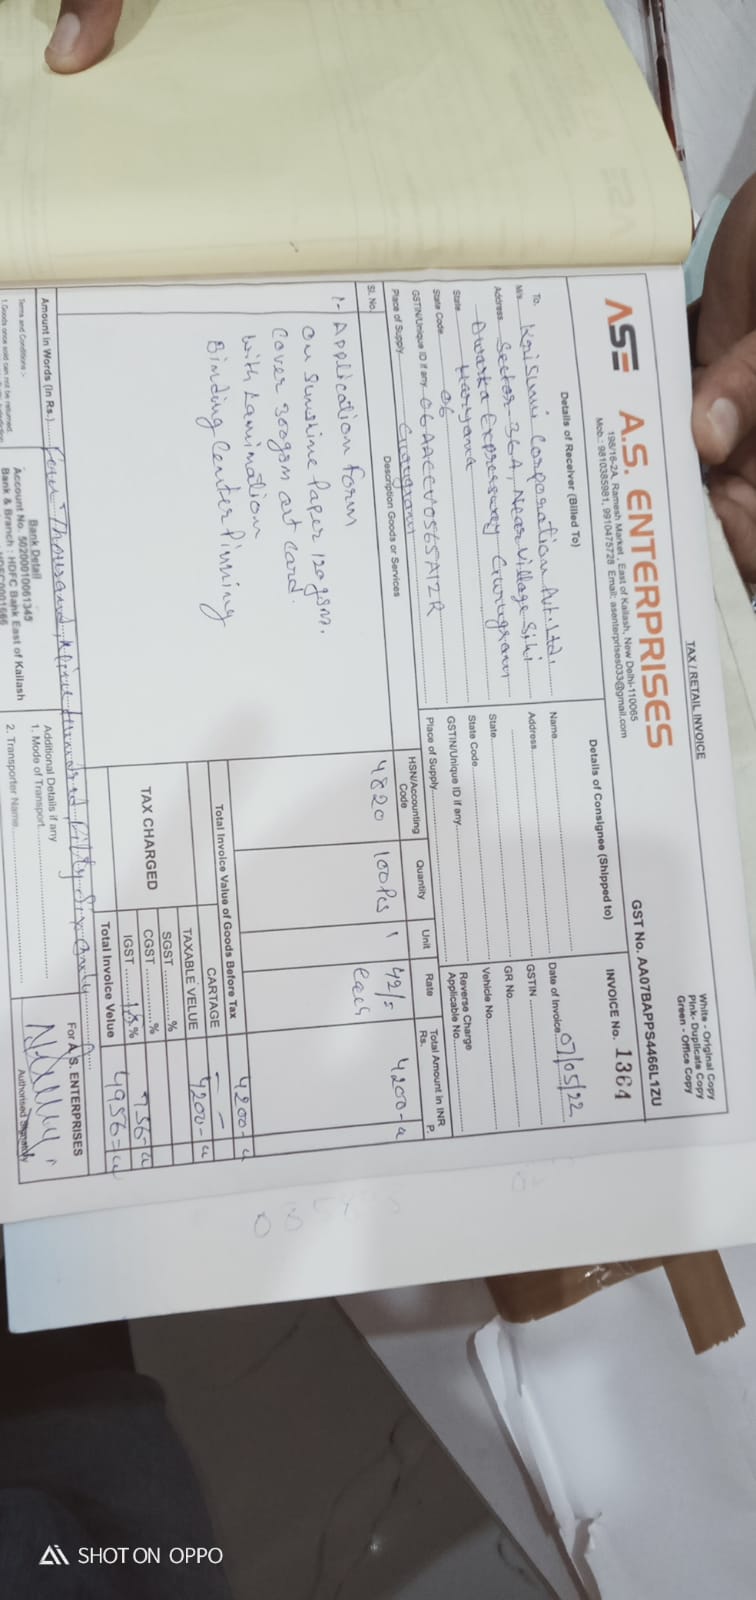 TAX / RETAIL INVOICE
White - Original Copy
Pink- Duplicate Copy
Green - Office Copy
GST No. AA07BAPPS4466L1ZU
ASE A.S. ENTERPRISES
198/16-2A, Ramesh Market, East of Kailash, New Delhi-110065
Mob.: 9810385981, 9910475728 Email: asenterprises033@gmail.com
INVOICE No. 1364
Details of Receiver (Billed To)
To,
M/s. Krisumi Corporation Pvt. Ltd.
Address. Sector-36A, Near Village Sihi
Dwarka Expressway Gurugram
State. Haryana
State Code. 06
GSTIN/Unique ID if any. 06AACCV0565A1ZR
Place of Supply. Gurugram
Details of Consignee (Shipped to)
Name
Address
State
State Code
GSTIN/Unique ID if any
Place of Supply
Date of Invoice 07/05/22
GSTIN
GR No.
Vehicle No.
Reverse Charge
Applicable No.
Sl. No. Description Goods or Services HSN/Accounting Code Quantity Unit Rate Total Amount in INR Rs. P.
1- Application form 4820 100Pcs 42/= each 4200-
on sunshine Paper 120gsm.
Cover 300gsm art Card.
with Lamination
Binding Center Pinning
Total Invoice Value of Goods Before Tax 4200-
CARTAGE
TAXABLE VELUE 4200-
TAX CHARGED
SGST %
CGST %
IGST 18% 756-
Total Invoice Value 4956=
Amount in Words (In Rs.) Four Thousand Nine Hundred Fifty Six only
Terms and Conditions :-
1.Goods once sold can not be returned.
Bank Detail
Account No. 50200010061345
Bank & Branch : HDFC Bank East of Kailash
Additional Details if any
1. Mode of Transport
2. Transporter Name
For A.S. ENTERPRISES
Authorised Signatory
SHOT ON OPPO